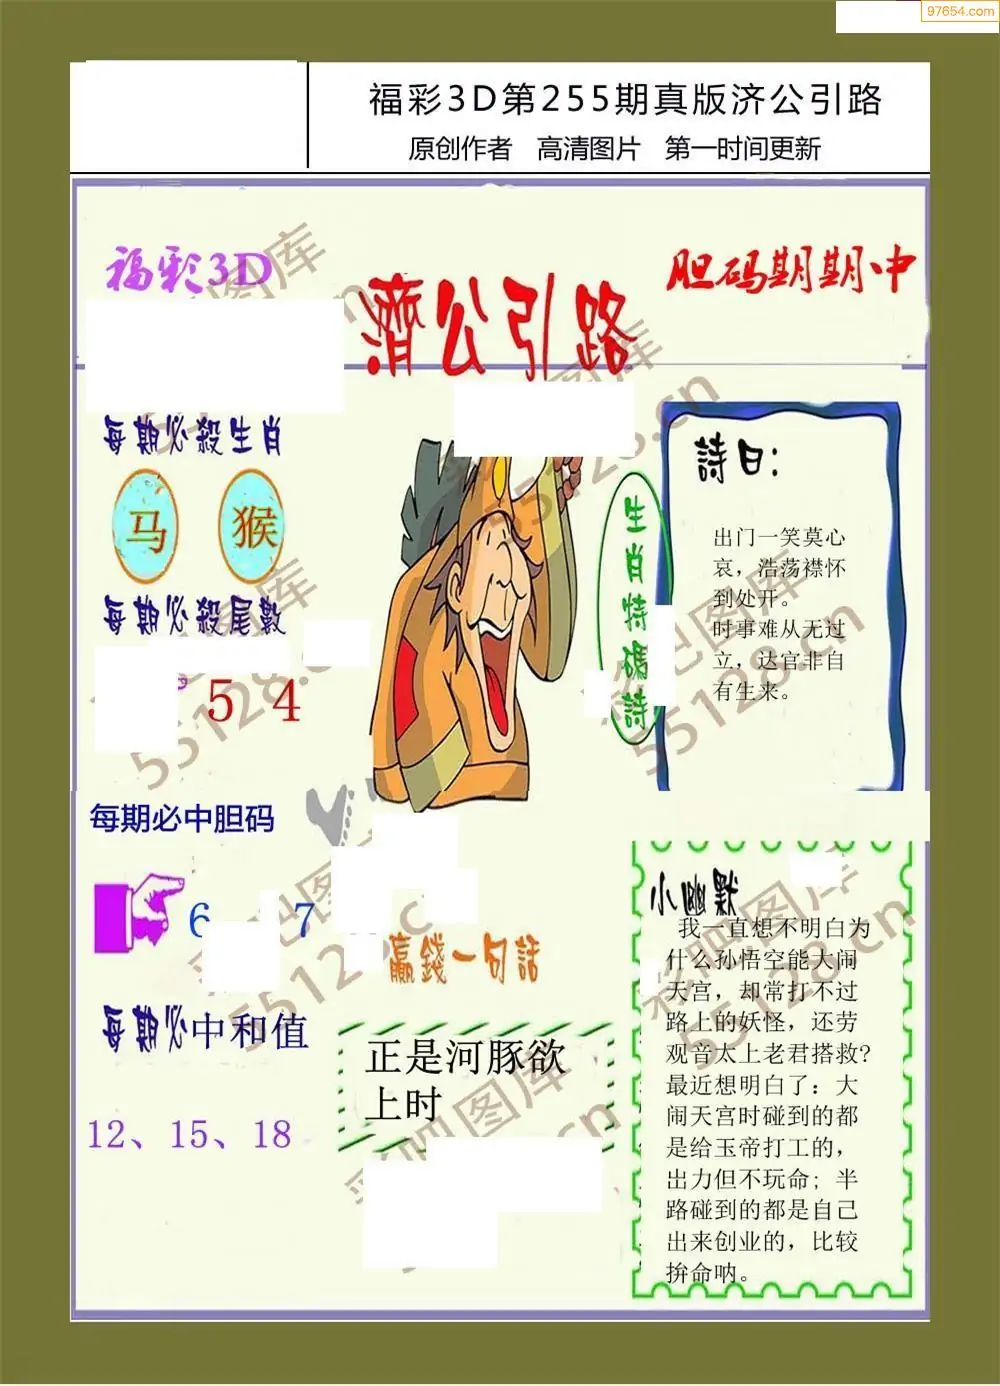 97654.com
福彩3D第255期真版济公引路
原创作者 高清图片 第一时间更新
福彩3D
濟公引路
胆码期期中
每期必殺生肖
马 猴
每期必殺尾數
5 4
每期必中胆码
6 7
每期必中和值
12、15、18
生肖特碼詩
詩曰:
出门一笑莫心
哀，浩荡襟怀
到处开。
时事难从无过
立，达官非自
有生来。
贏錢一句話
正是河豚欲
上时
小幽默
我一直想不明白为
什么孙悟空能大闹
天宫，却常打不过
路上的妖怪，还劳
观音太上老君搭救?
最近想明白了: 大
闹天宫时碰到的都
是给玉帝打工的，
出力但不玩命; 半
路碰到的都是自己
出来创业的，比较
拚命呐。
彩吧图库
55128.cn